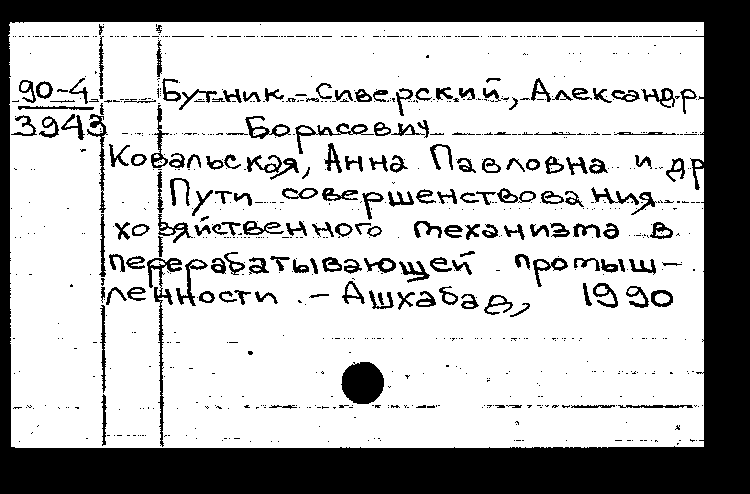 90-4
3943
Бутник-Сиверский, Александр
Борисович
Ковальская, Анна Павловна и др
Пути совершенствования
хозяйственного механизма в
перерабатывающей промыш-
ленности. - Ашхабад, 1990